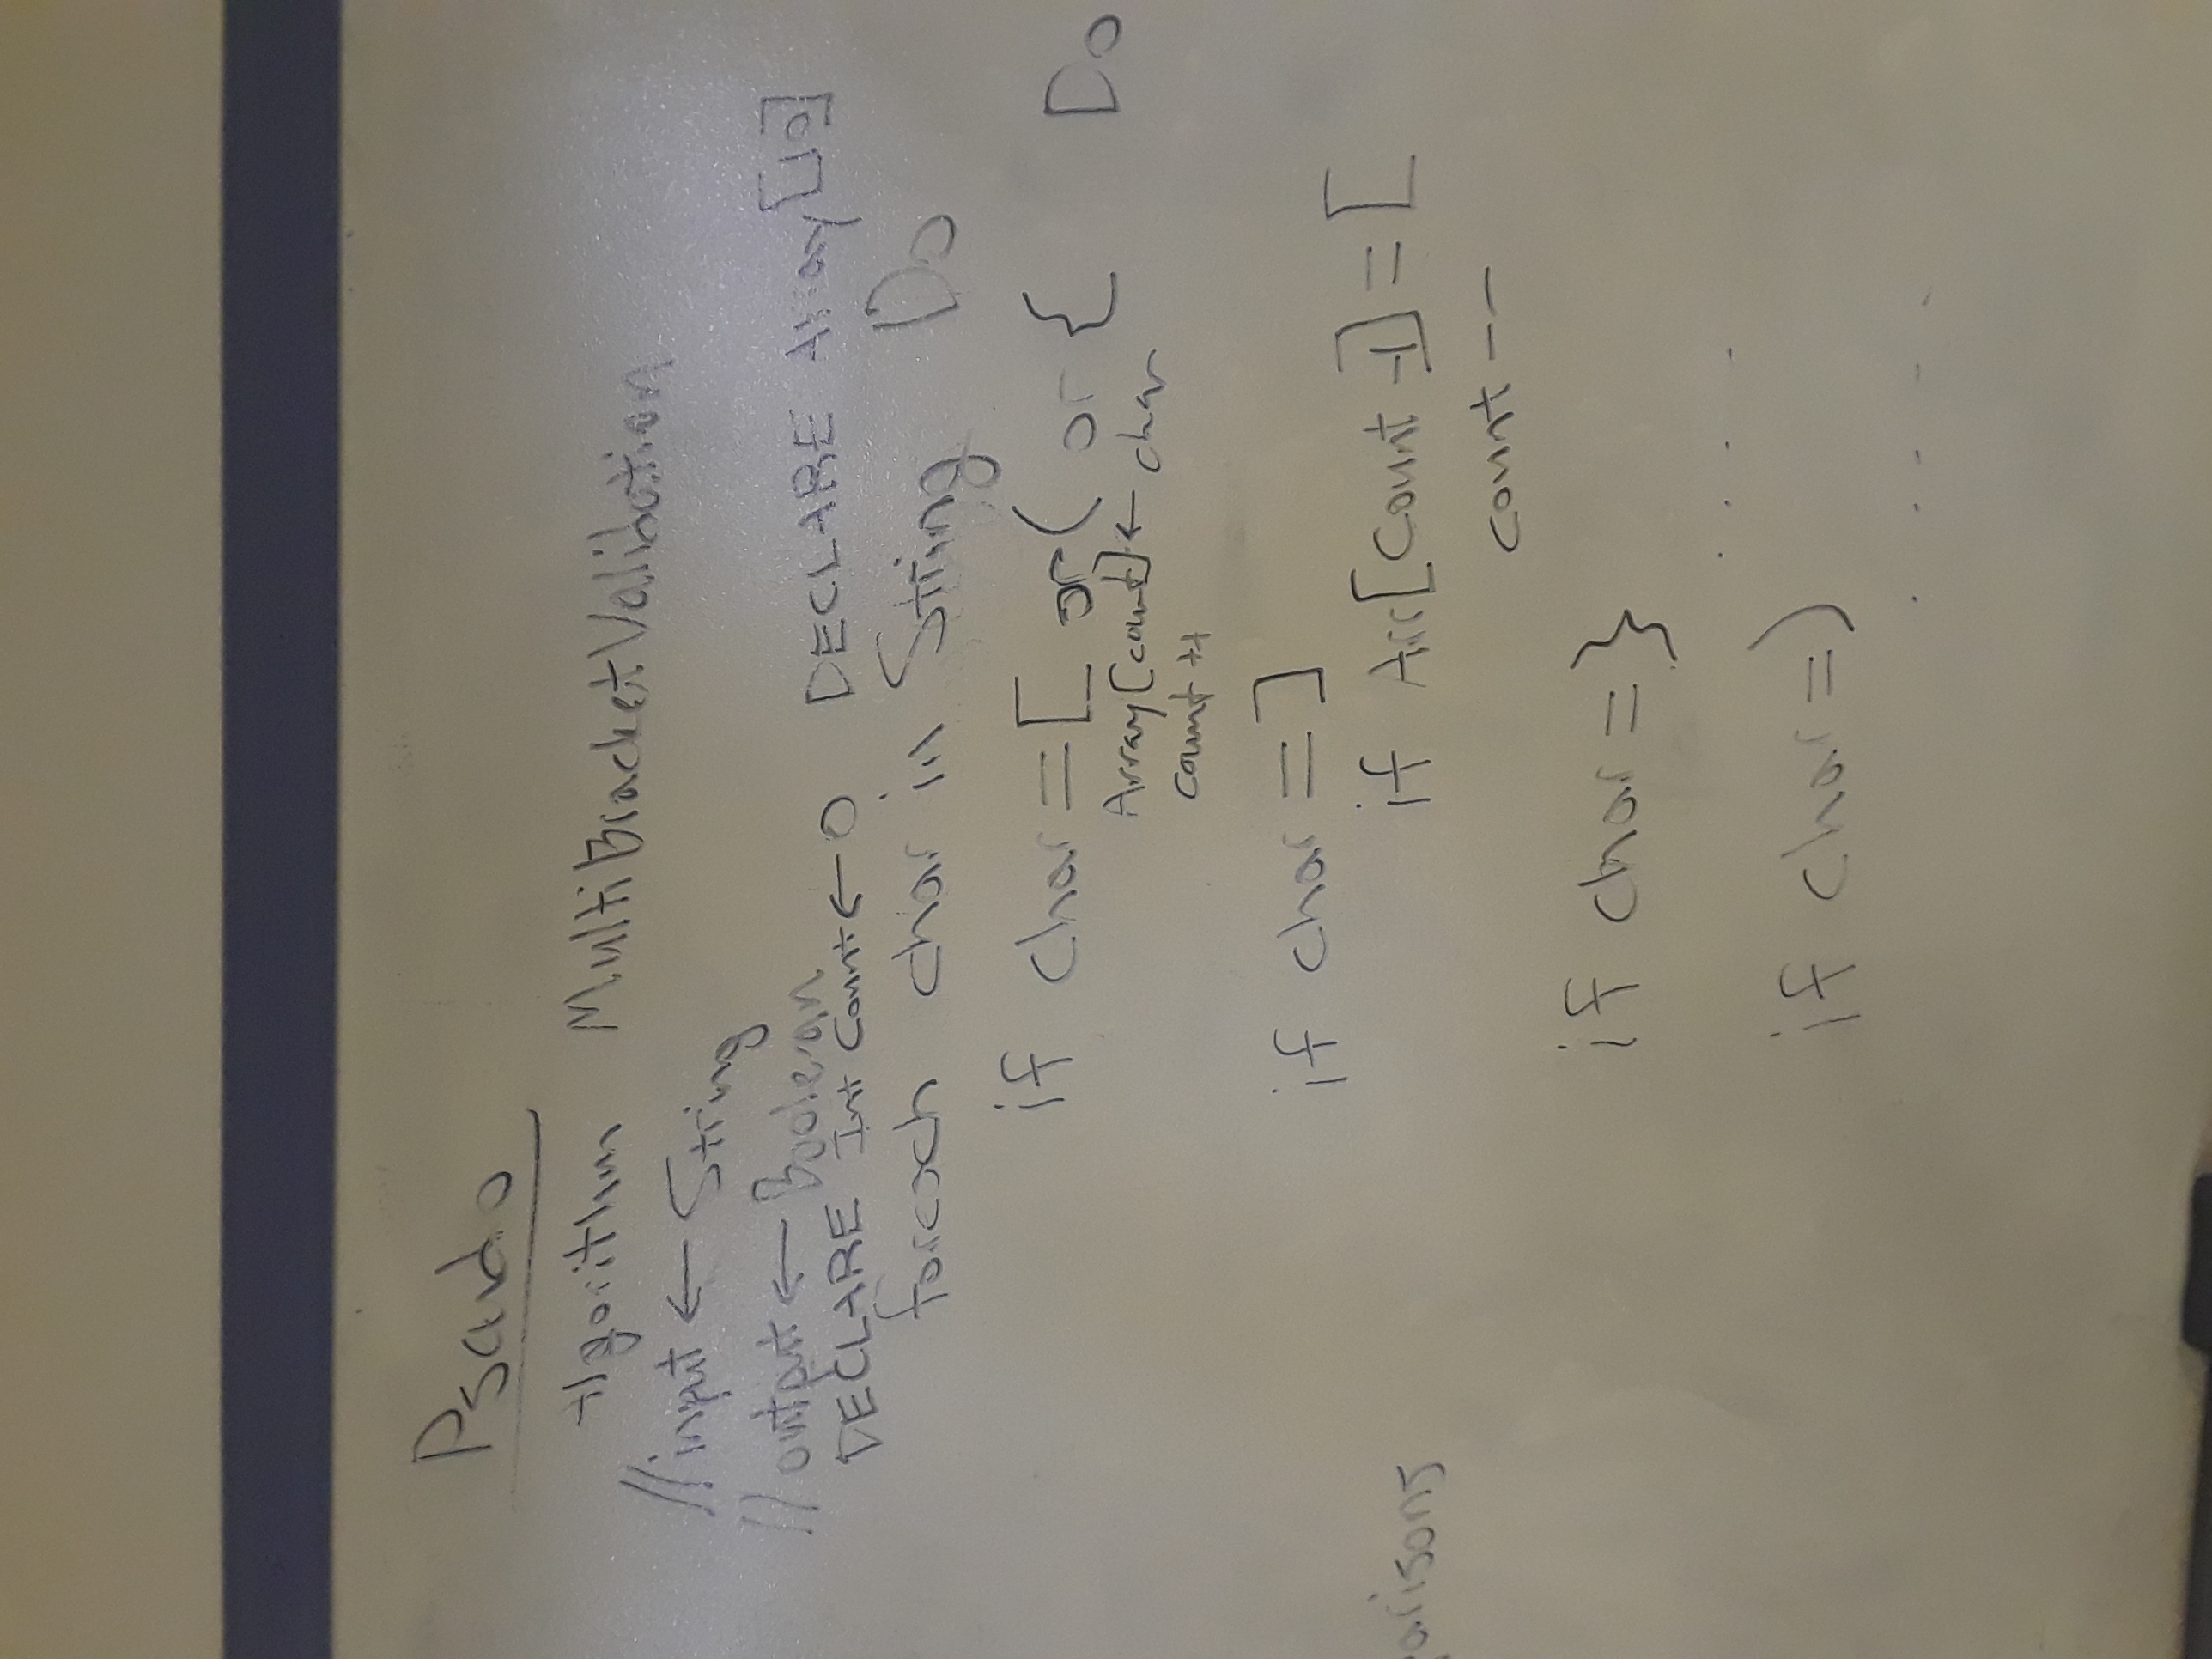 Psuedo
Algorithm MultiBracketValidation
//input ← String
//output ← Boolean
DECLARE Int Count ← 0 DECLARE Array[10]
foreach char in String Do
if char = [ or ( or { Do
Array[count] ← char
count ++
if char = ]
if Arr[Count -1] = [
count --
arisons
if char = }
. . . .
if char = )
. . . . .